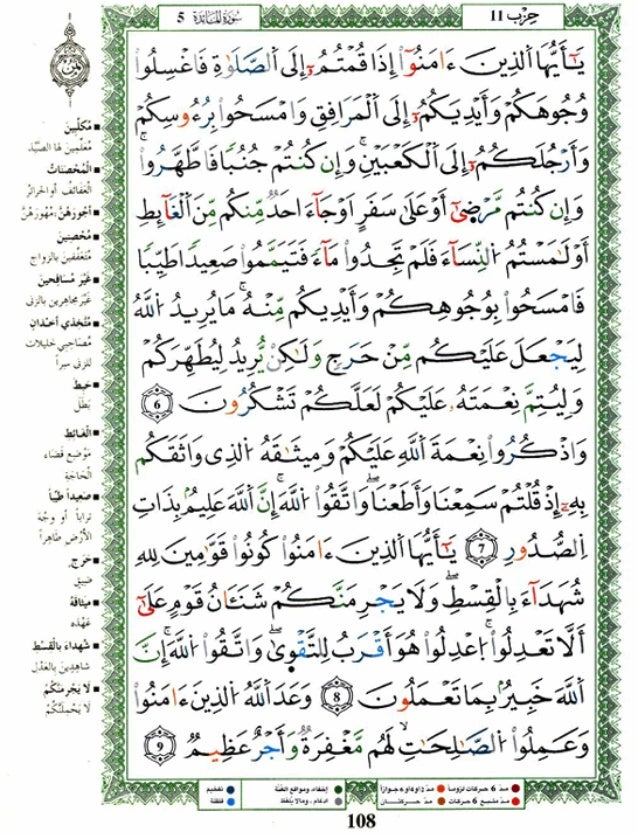 حِزْب 11
سُورَةُ المَائِدَة 5
يَٰٓأَيُّهَا اَ۬لذِينَ ءَامَنُوٓاْ إِذَا قُمْتُمُۥٓ إِلَى اَ۬لصَّلَوٰةِ فَاغْسِلُواْ
وُجُوهَكُمْ وَأَيْدِيَكُمُۥٓ إِلَى اَ۬لْمَرَافِقِ وَامْسَحُواْ بِرُءُوسِكُمْ
وَأَرْجُلَكُمُۥٓ إِلَى اَ۬لْكَعْبَيْنِۖ وَإِن كُنتُمْ جُنُباٗ فَاطَّهَّرُواْۖ
وَإِن كُنتُم مَّرْضَىٰٓ أَوْ عَلَىٰ سَفَرٍ اَوْ جَآءَ احَدٞ مِّنكُم مِّنَ اَ۬لْغَآئِطِ
أَوْ لَٰمَسْتُمُ اُ۬لنِّسَآءَ فَلَمْ تَجِدُواْ مَآءٗ فَتَيَمَّمُواْ صَعِيداٗ طَيِّباٗ
فَامْسَحُواْ بِوُجُوهِكُمْ وَأَيْدِيكُم مِّنْهُۖ مَا يُرِيدُ اُ۬للَّهُ
لِيَجْعَلَ عَلَيْكُم مِّنْ حَرَجٖ وَلَٰكِنْ يُّرِيدُ لِيُطَهِّرَكُمْ
وَلِيُتِمَّ نِعْمَتَهُۥ عَلَيْكُمْ لَعَلَّكُمْ تَشْكُرُونَ 6
وَاذْكُرُواْ نِعْمَةَ اَ۬للَّهِ عَلَيْكُمْ وَمِيثَٰقَهُ اُ۬لذِے وَاثَقَكُم
بِهِۦٓ إِذْ قُلْتُمْ سَمِعْنَا وَأَطَعْنَاۖ وَاتَّقُواْ اُ۬للَّهَۖ إِنَّ اَ۬للَّهَ عَلِيمُۢ بِذَاتِ
اِ۬لصُّدُورِ 7 يَٰٓأَيُّهَا اَ۬لذِينَ ءَامَنُواْ كُونُواْ قَوَّٰمِينَ لِلهِ
شُهَدَآءَ بِالْقِسْطِۖ وَلَا يَجْرِمَنَّكُمْ شَنَـَٔانُ قَوْمٍ عَلَىٰٓ
أَلَّا تَعْدِلُواْۖ اُ۪عْدِلُواْ هُوَ أَقْرَبُ لِلتَّقْوَىٰۖ وَاتَّقُواْ اُ۬للَّهَۖ إِنَّ
اَ۬للَّهَ خَبِيرُۢ بِمَا تَعْمَلُونَ 8 وَعَدَ اَ۬للَّهُ اُ۬لذِينَ ءَامَنُواْ
وَعَمِلُواْ اُ۬لصَّٰلِحَٰتِ لَهُم مَّغْفِرَةٞ وَأَجْرٌ عَظِيمٞ 9
■ مُكَلِّبِينَ
مُعَلِّمِينَ لَهَا الصَّيْدَ
■ الْمُحْصَنَاتُ
العَفَائِفُ أو الحَرَائِرُ
■ أُجُورَهُنَّ: مُهُورَهُنَّ
■ مُحْصِنِينَ
مُتَعَفِّفِينَ بِالزَّوَاجِ
■ غَيْرَ مُسَافِحِينَ
غَيْرَ مُجَاهِرِينَ بِالزِّنَى
■ مُتَّخِذِي أَخْدَانٍ
مُصَاحِبِي خَلِيلَاتٍ
لِلزِّنَى سِرّاً
■ حَبِطَ
بَطَلَ
■ الْغَائِطِ
مَوْضِعِ قَضَاءِ
الْحَاجَةِ
■ صَعِيداً طَيِّباً
تُرَاباً أَو وَجْهَ
الأَرْضِ طَاهِراً
■ حَرَجٍ
ضِيقٍ
■ مِيثَاقَهُ
عَهْدَهُ
■ شُهَدَاءَ بِالْقِسْطِ
شَاهِدِينَ بِالعَدْلِ
■ لَا يَجْرِمَنَّكُمْ
لَا يَحْمِلَنَّكُمْ
مدّ 6 حركات لزوماً مدّ 2 أو 4 أو 6 جوازاً إخفاء، ومواقع الغُنَّة تفخيم
مدّ مشبع 6 حركات مدّ حركتان ادغام، وما لا يُلفَظ قلقلة
108